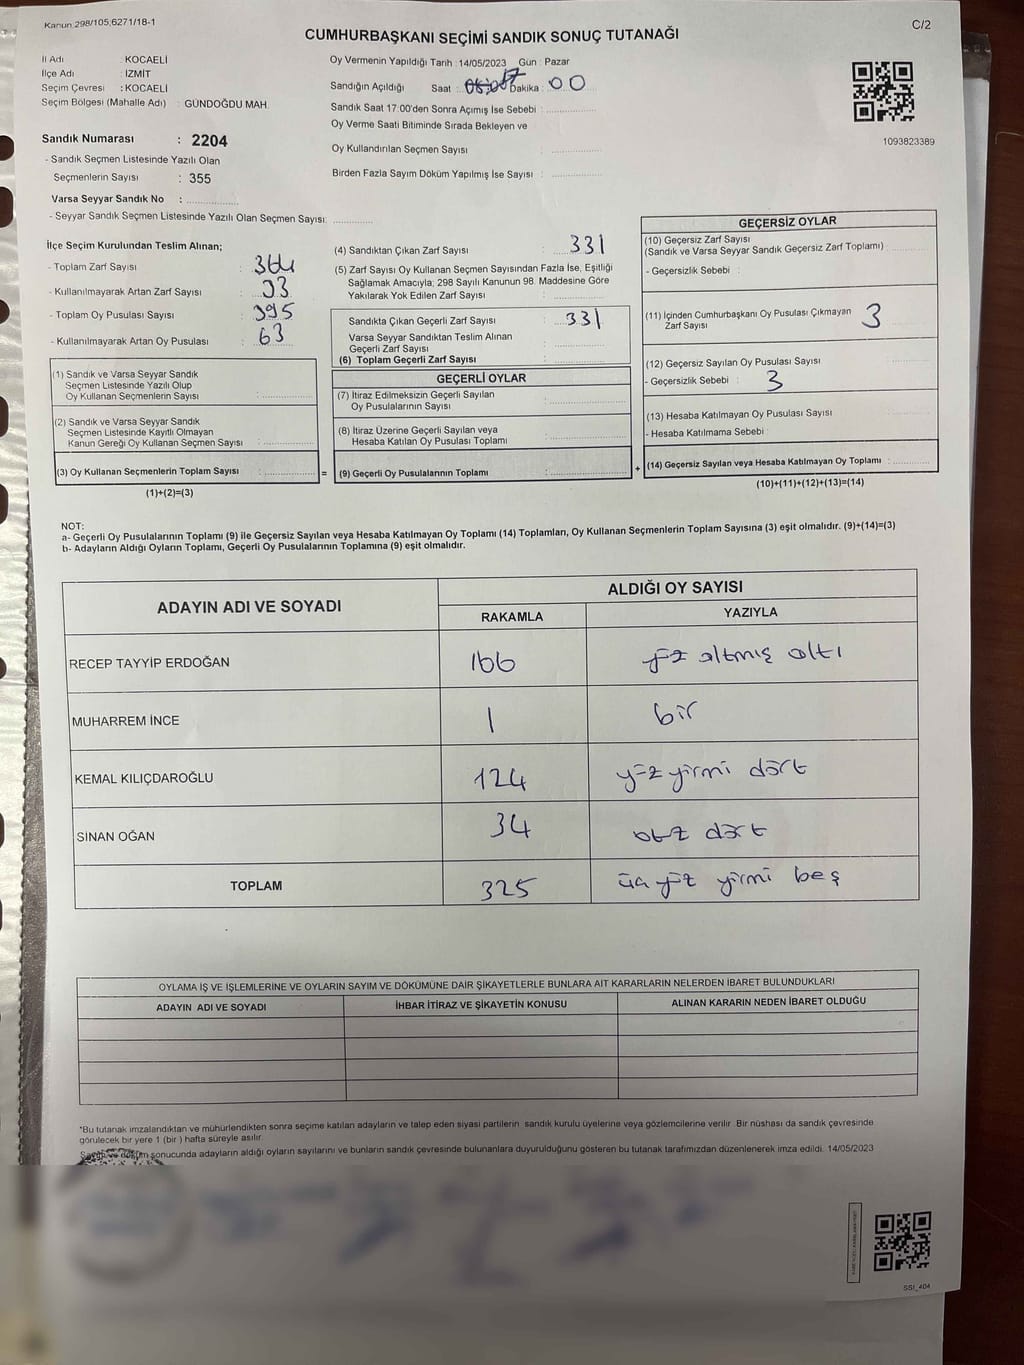 Kanun 298/105;6271/18-1
C/2
CUMHURBAŞKANI SEÇİMİ SANDIK SONUÇ TUTANAĞI
İl Adı : KOCAELİ
İlçe Adı : İZMİT
Seçim Çevresi : KOCAELİ
Seçim Bölgesi (Mahalle Adı) : GÜNDOĞDU MAH.
Sandık Numarası : 2204
- Sandık Seçmen Listesinde Yazılı Olan
Seçmenlerin Sayısı : 355
Varsa Seyyar Sandık No :
- Seyyar Sandık Seçmen Listesinde Yazılı Olan Seçmen Sayısı:
Oy Vermenin Yapıldığı Tarih : 14/05/2023 Gün : Pazar
Sandığın Açıldığı Saat : Dakika : 00
Sandık Saat 17:00'den Sonra Açımış İse Sebebi :
Oy Verme Saati Bitiminde Sırada Bekleyen ve
Oy Kullandırılan Seçmen Sayısı :
Birden Fazla Sayım Döküm Yapılmış İse Sayısı :
1093823389
İlçe Seçim Kurulundan Teslim Alınan;
- Toplam Zarf Sayısı : 364
- Kullanılmayarak Artan Zarf Sayısı : 33
- Toplam Oy Pusulası Sayısı : 395
- Kullanılmayarak Artan Oy Pusulası : 63
(1) Sandık ve Varsa Seyyar Sandık
Seçmen Listesinde Yazılı Olup
Oy Kullanan Seçmenlerin Sayısı :
(2) Sandık ve Varsa Seyyar Sandık
Seçmen Listesinde Kayıtlı Olmayan
Kanun Gereği Oy Kullanan Seçmen Sayısı :
(3) Oy Kullanan Seçmenlerin Toplam Sayısı :
(1)+(2)=(3)
=
(4) Sandıktan Çıkan Zarf Sayısı : 331
(5) Zarf Sayısı Oy Kullanan Seçmen Sayısından Fazla İse, Eşitliği
Sağlamak Amacıyla; 298 Sayılı Kanunun 98. Maddesine Göre
Yakılarak Yok Edilen Zarf Sayısı :
Sandıkta Çıkan Geçerli Zarf Sayısı : 331
Varsa Seyyar Sandıktan Teslim Alınan
Geçerli Zarf Sayısı :
(6) Toplam Geçerli Zarf Sayısı :
GEÇERLİ OYLAR
(7) İtiraz Edilmeksizin Geçerli Sayılan
Oy Pusulalarının Sayısı :
(8) İtiraz Üzerine Geçerli Sayılan veya
Hesaba Katılan Oy Pusulası Toplamı :
(9) Geçerli Oy Pusulalarının Toplamı :
+
GEÇERSİZ OYLAR
(10) Geçersiz Zarf Sayısı
(Sandık ve Varsa Seyyar Sandık Geçersiz Zarf Toplamı) :
- Geçersizlik Sebebi :
(11) İçinden Cumhurbaşkanı Oy Pusulası Çıkmayan
Zarf Sayısı : 3
(12) Geçersiz Sayılan Oy Pusulası Sayısı :
- Geçersizlik Sebebi : 3
(13) Hesaba Katılmayan Oy Pusulası Sayısı :
- Hesaba Katılmama Sebebi :
(14) Geçersiz Sayılan veya Hesaba Katılmayan Oy Toplamı :
(10)+(11)+(12)+(13)=(14)
NOT:
a- Geçerli Oy Pusulalarının Toplamı (9) ile Geçersiz Sayılan veya Hesaba Katılmayan Oy Toplamı (14) Toplamları, Oy Kullanan Seçmenlerin Toplam Sayısına (3) eşit olmalıdır. (9)+(14)=(3)
b- Adayların Aldığı Oyların Toplamı, Geçerli Oy Pusulalarının Toplamına (9) eşit olmalıdır.
ADAYIN ADI VE SOYADI
ALDIĞI OY SAYISI
RAKAMLA YAZIYLA
RECEP TAYYİP ERDOĞAN 166 yüz altmış altı
MUHARREM İNCE 1 bir
KEMAL KILIÇDAROĞLU 124 yüz yirmi dört
SİNAN OĞAN 34 otuz dört
TOPLAM 325 üç yüz yirmi beş
OYLAMA İŞ VE İŞLEMLERİNE VE OYLARIN SAYIM VE DÖKÜMÜNE DAİR ŞİKAYETLERLE BUNLARA AİT KARARLARIN NELERDEN İBARET BULUNDUKLARI
ADAYIN ADI VE SOYADI İHBAR İTİRAZ VE ŞİKAYETİN KONUSU ALINAN KARARIN NEDEN İBARET OLDUĞU
*Bu tutanak imzalandıktan ve mühürlendikten sonra seçime katılan adayların ve talep eden siyasi partilerin sandık kurulu üyelerine veya gözlemcilerine verilir. Bir nüshası da sandık çevresinde
görülecek bir yere 1 (bir) hafta süreyle asılır.
sonucunda adayların aldığı oyların sayılarını ve bunların sandık çevresinde bulunanlara duyurulduğunu gösteren bu tutanak tarafımızdan düzenlenerek imza edildi. 14/05/2023
SSI_404